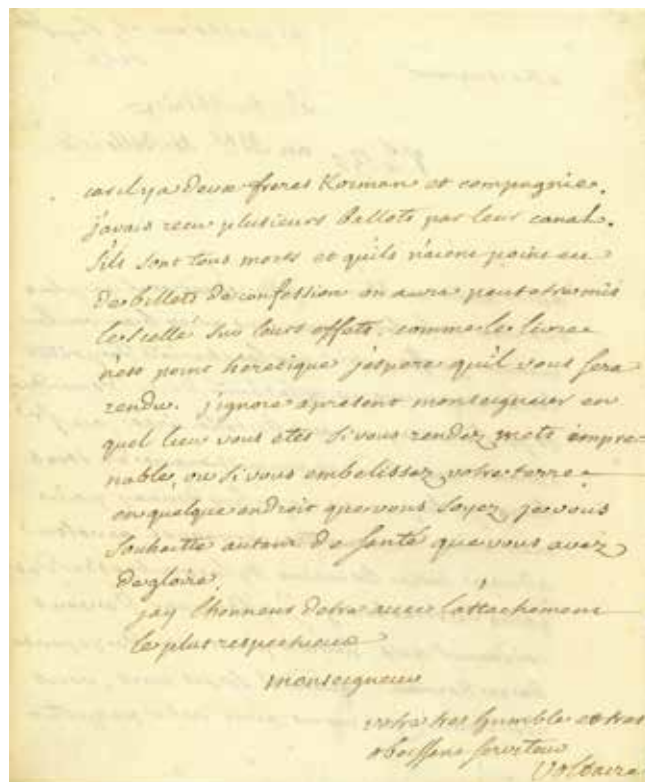 car il y a deux freres Korman et compagnie.
j'avais recu plusieurs ballots par leur canal.
s'ils sont tous morts et quils n'aient point eu
de billets de confession on aura peutetre mis
le scellé sur leurs effets. comme le livre
nest point heretique j'espere quil vous sera
rendu. j'ignore apresent monseigneur en
quel lieu vous etes si vous rendez mets impre-
nable, ou si vous embelissez votre terre.
en quelque endroit que vous soyez, je vous
souhaitte autant de santé que vous avez
de gloire.
jay l'honneur detre avec l'attachement
le plus respectueux
monseigneur
votre tres humble et tres
obeissant serviteur
Voltaire